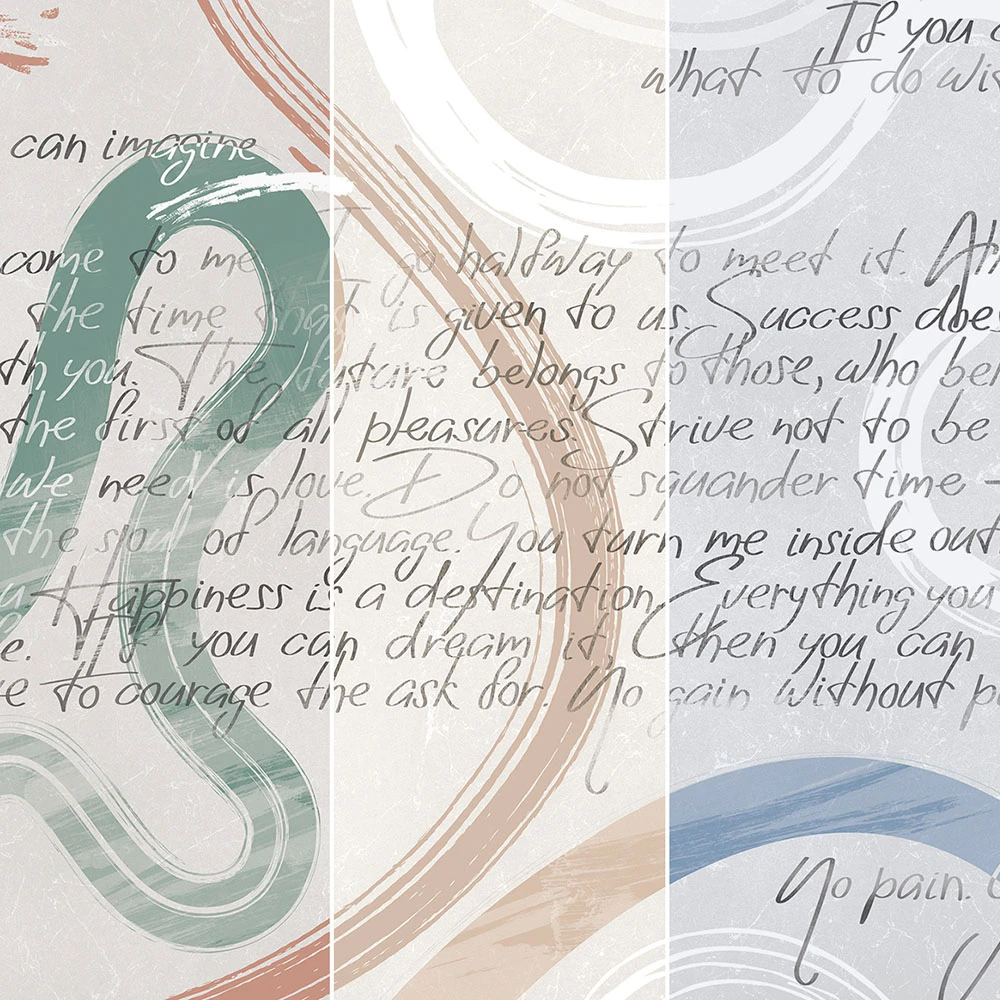 If you c
what to do wit
can imagine
come to me I go halfway to meet it. Al
the time that is given to us. Success does
th you. The future belongs to those, who bel
the first of all pleasures. Strive not to be
we need is love. Do not squander time -
the soul of language. You turn me inside out
u Happiness is a destination. Everything you
e. If you can dream it, then you can
e to courage the ask for. No gain without p
No pain.